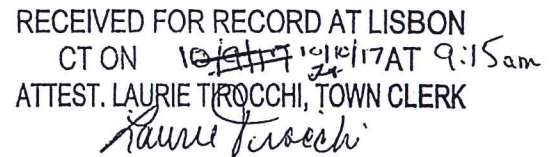 RECEIVED FOR RECORD AT LISBON
CT ON 10/9/17 10/10/17 AT 9:15am
ATTEST. LAURIE TIROCCHI, TOWN CLERK
Laurie Tirocchi